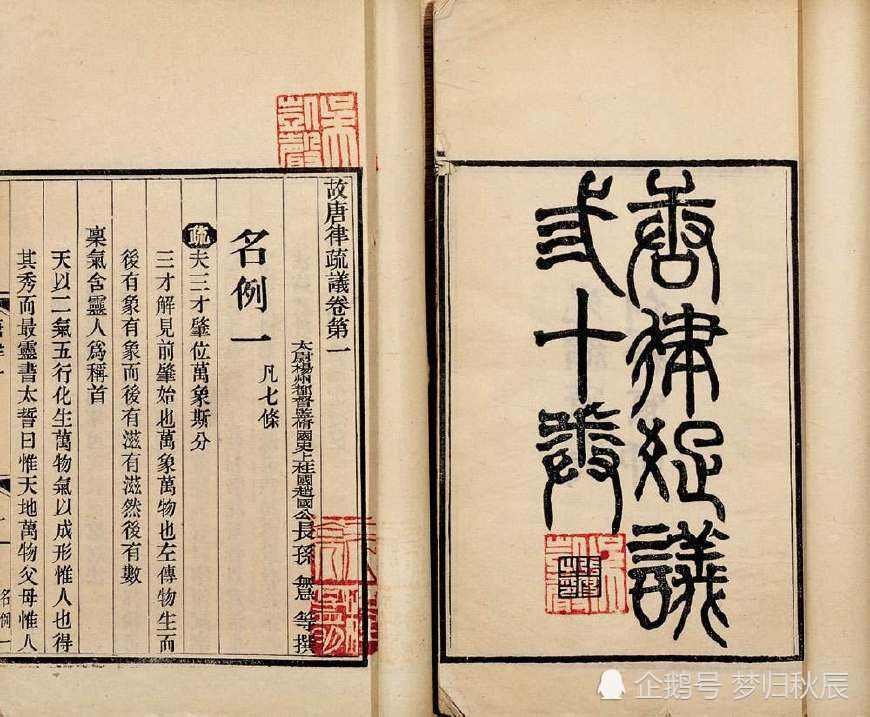 唐律疏議
弎十卷
吳凱聲
故唐律疏議卷第一
太尉揚州都督監修國史上柱國趙國公長孫無忌等撰
名例一 凡七條
疏夫三才肇位萬象斯分
三才解見前肇始也萬象萬物也左傳物生而
後有象有象而後有滋有滋然後有數
稟氣含靈人爲稱首
天以二氣五行化生萬物氣以成形惟人也得
其秀而最靈書太誓曰惟天地萬物父母惟人
名例一
企鹅号 梦归秋辰